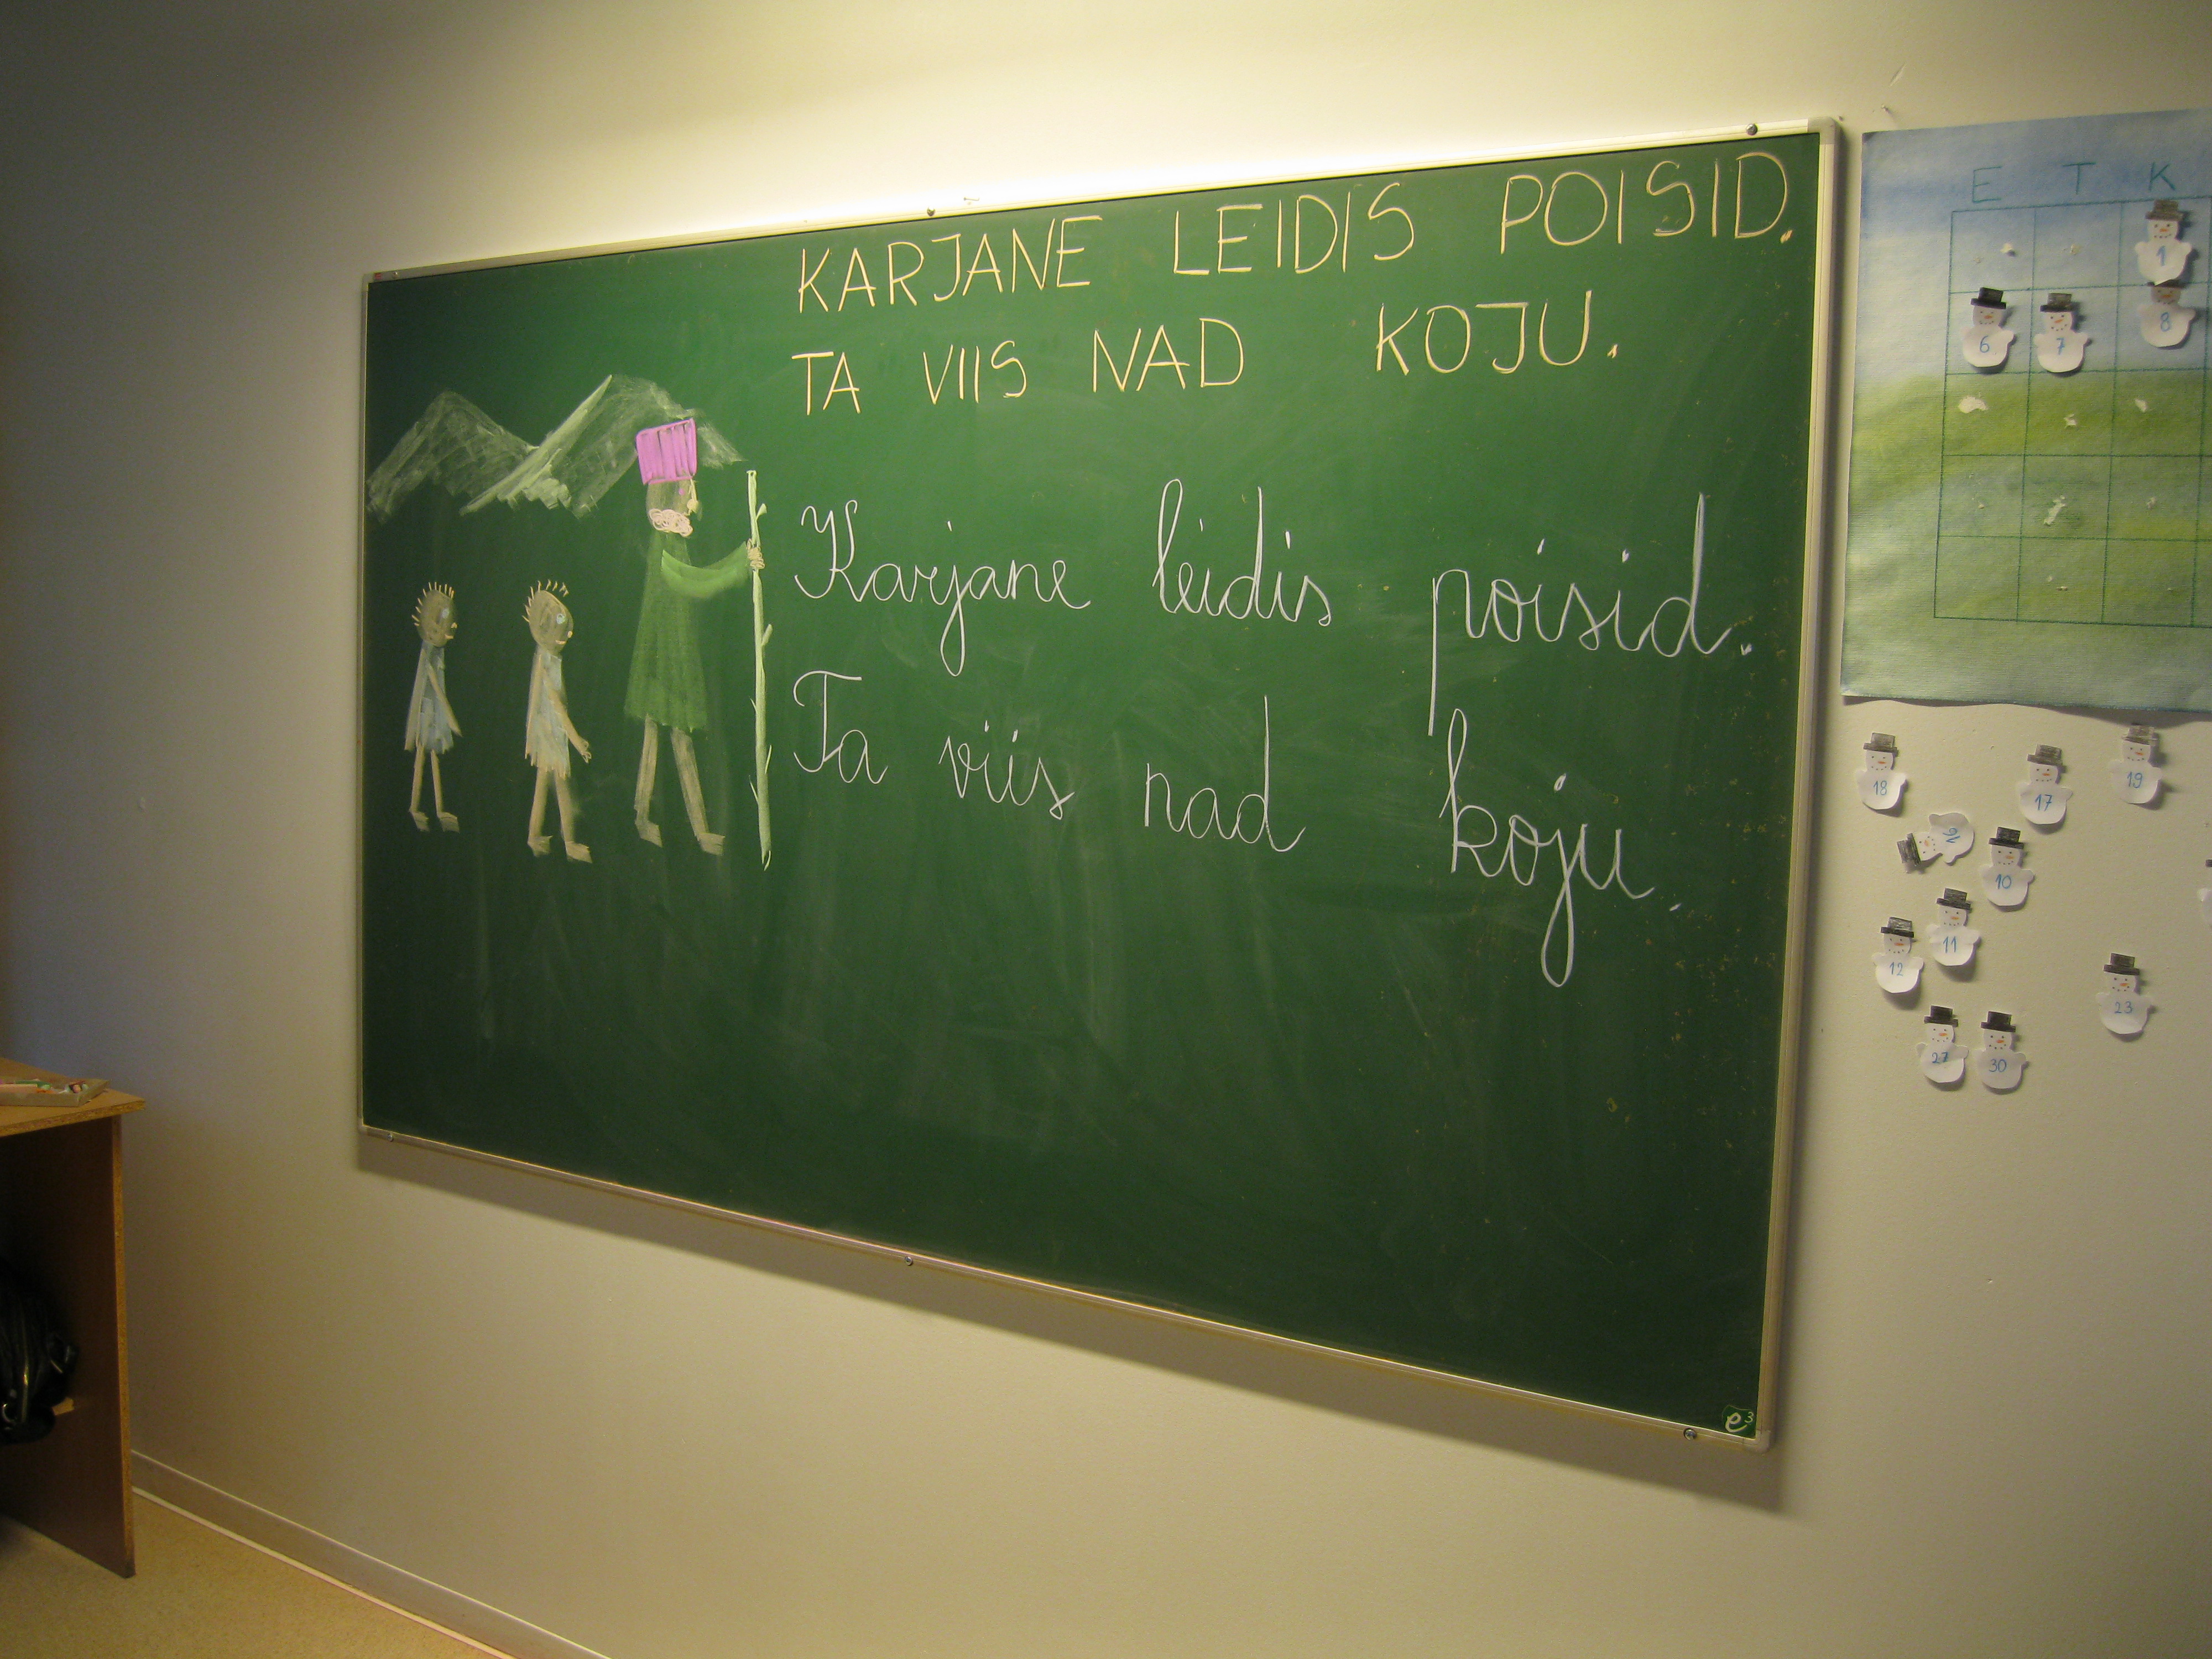 KARJANE LEIDIS POISID.
TA VIIS NAD KOJU.
Karjane leidis poisid.
Ta viis nad koju.
e³
E T K
1
6 7 8
18 17 19
2 10
12 11
23
27 30